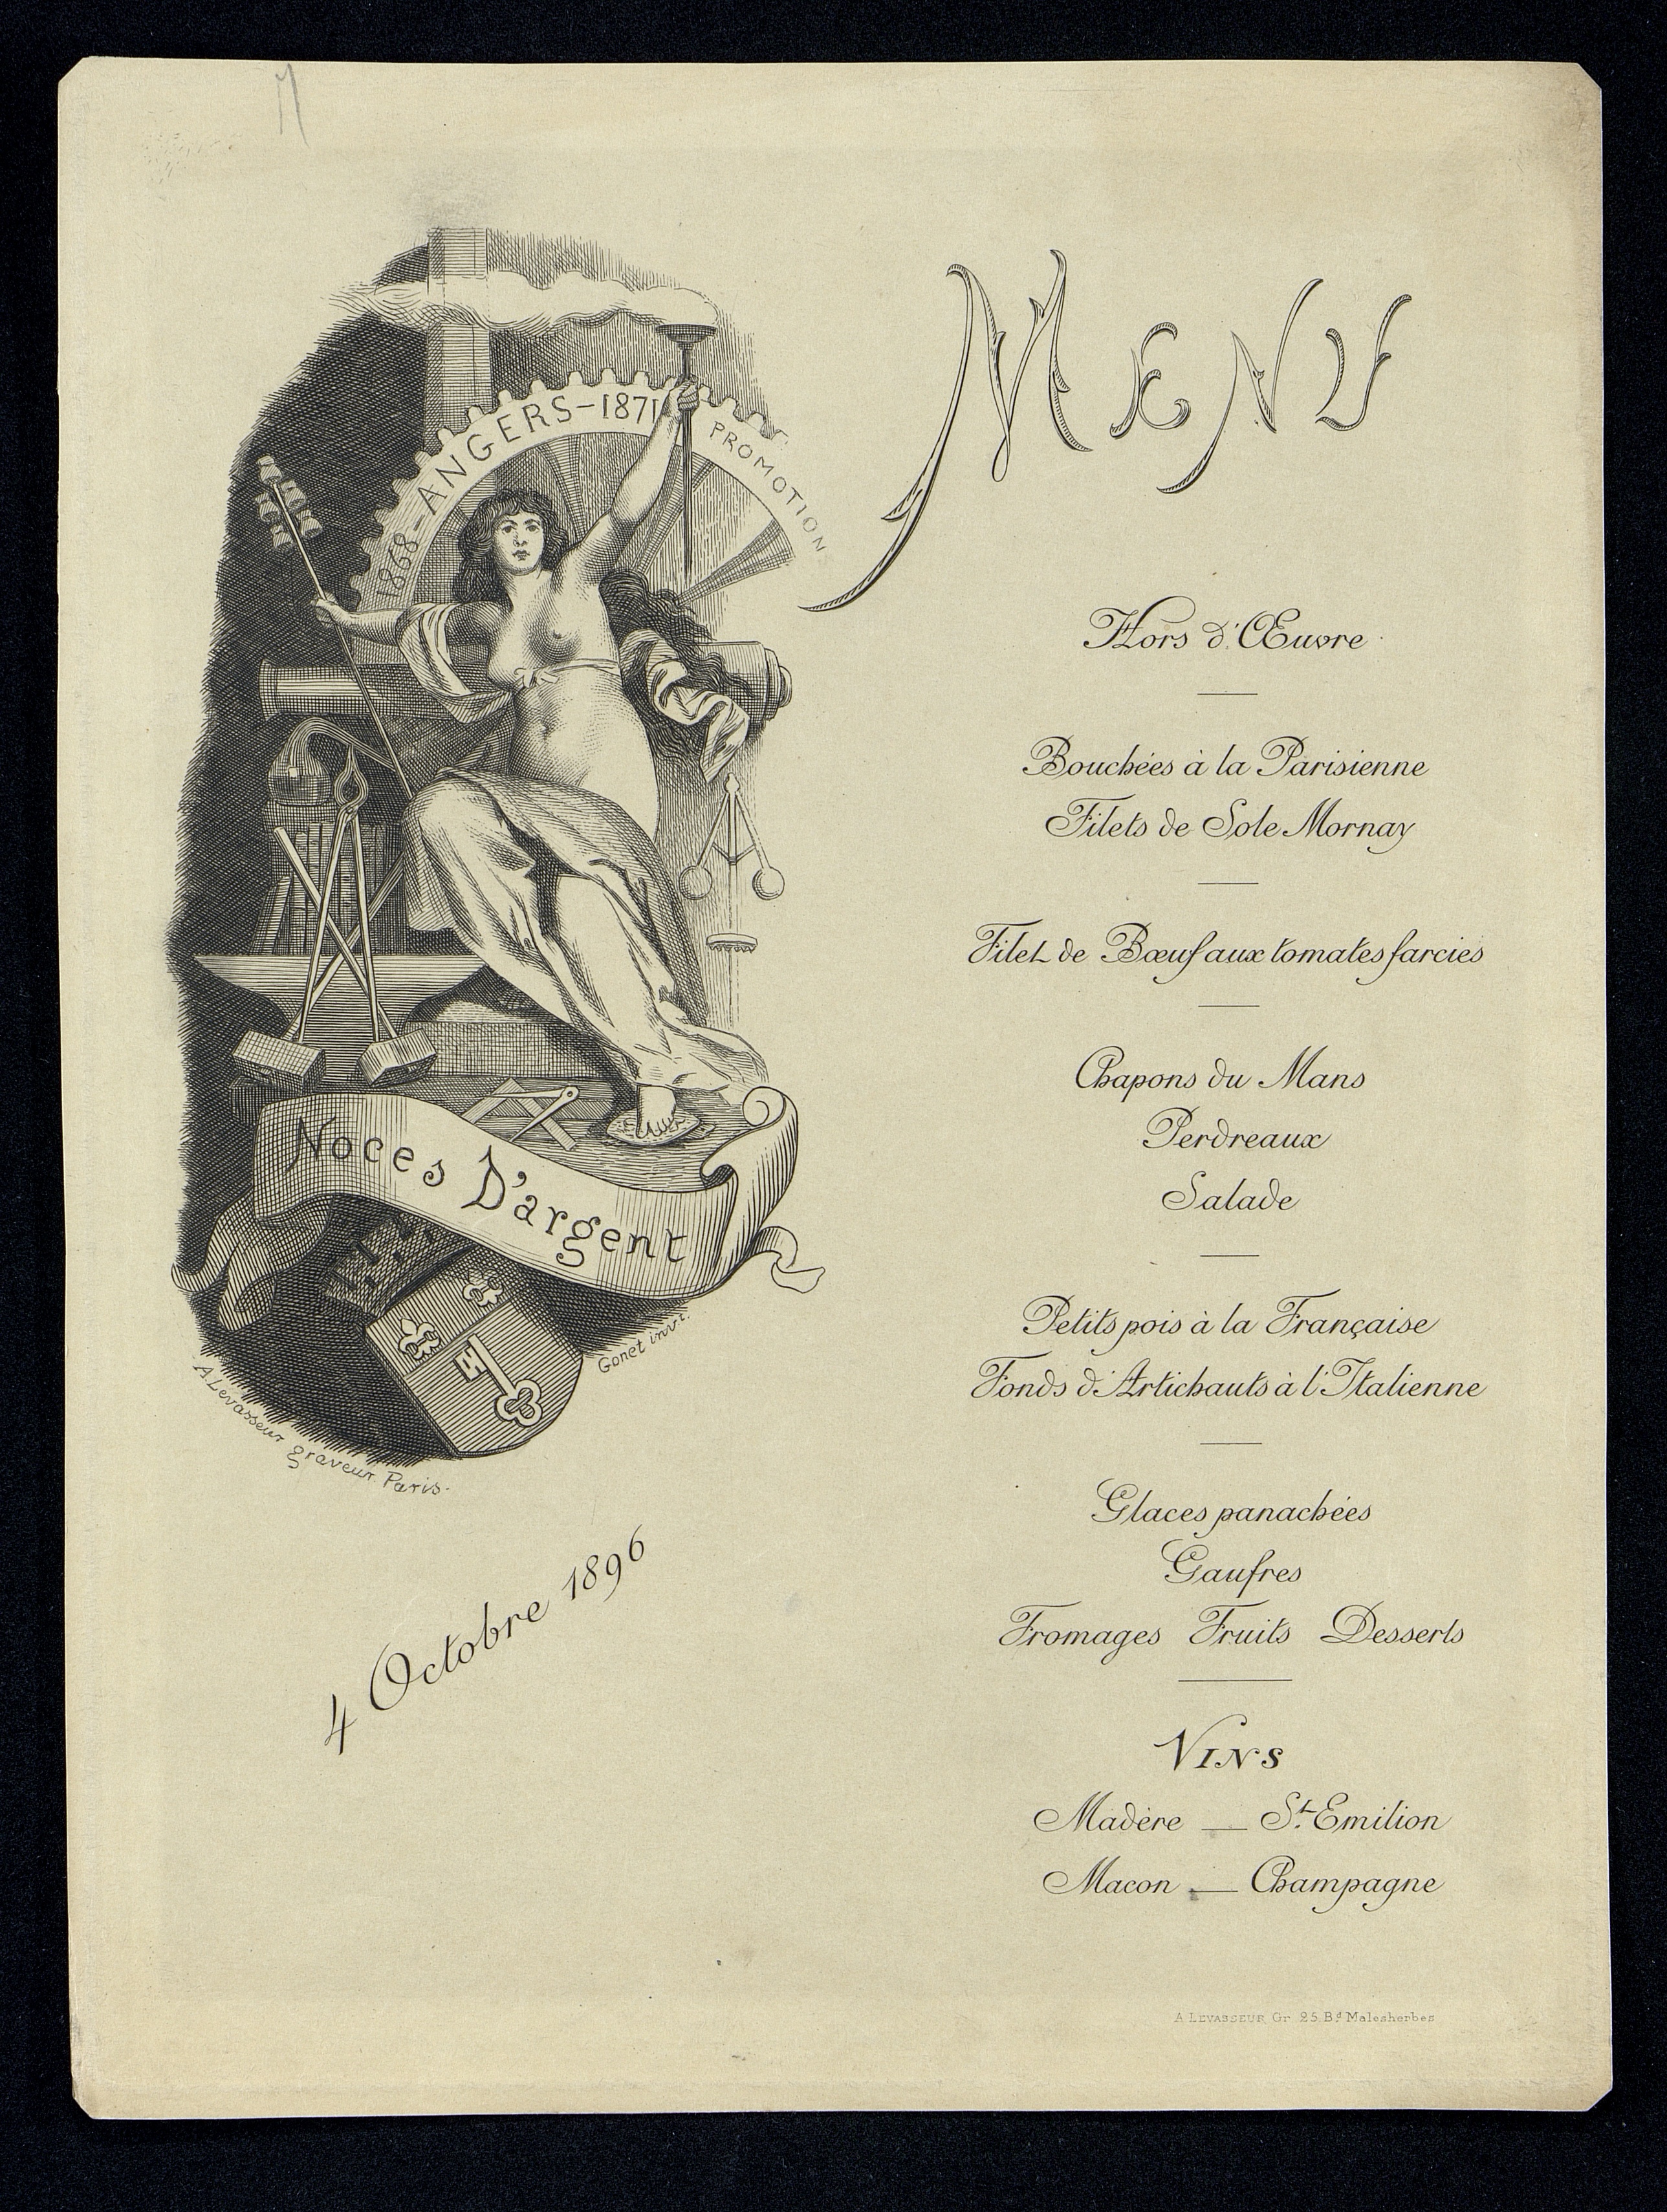 1868-ANGERS-1871
PROMOTION
Noces D'argent
Gonet inv.t
A. Levasseur graveur Paris.
4 Octobre 1896
MENU
Hors d'Œuvre
Bouchées à la Parisienne
Filets de Sole Mornay
Filet de Bœuf aux tomates farcies
Chapons du Mans
Perdreaux
Salade
Petits pois à la Française
Fonds d'Artichauts à l'Italienne
Glaces panachées
Gaufres
Fromages Fruits Desserts
VINS
Madère — St. Emilion
Macon — Champagne
A. LEVASSEUR, Gr. 25. Bd Malesherbes